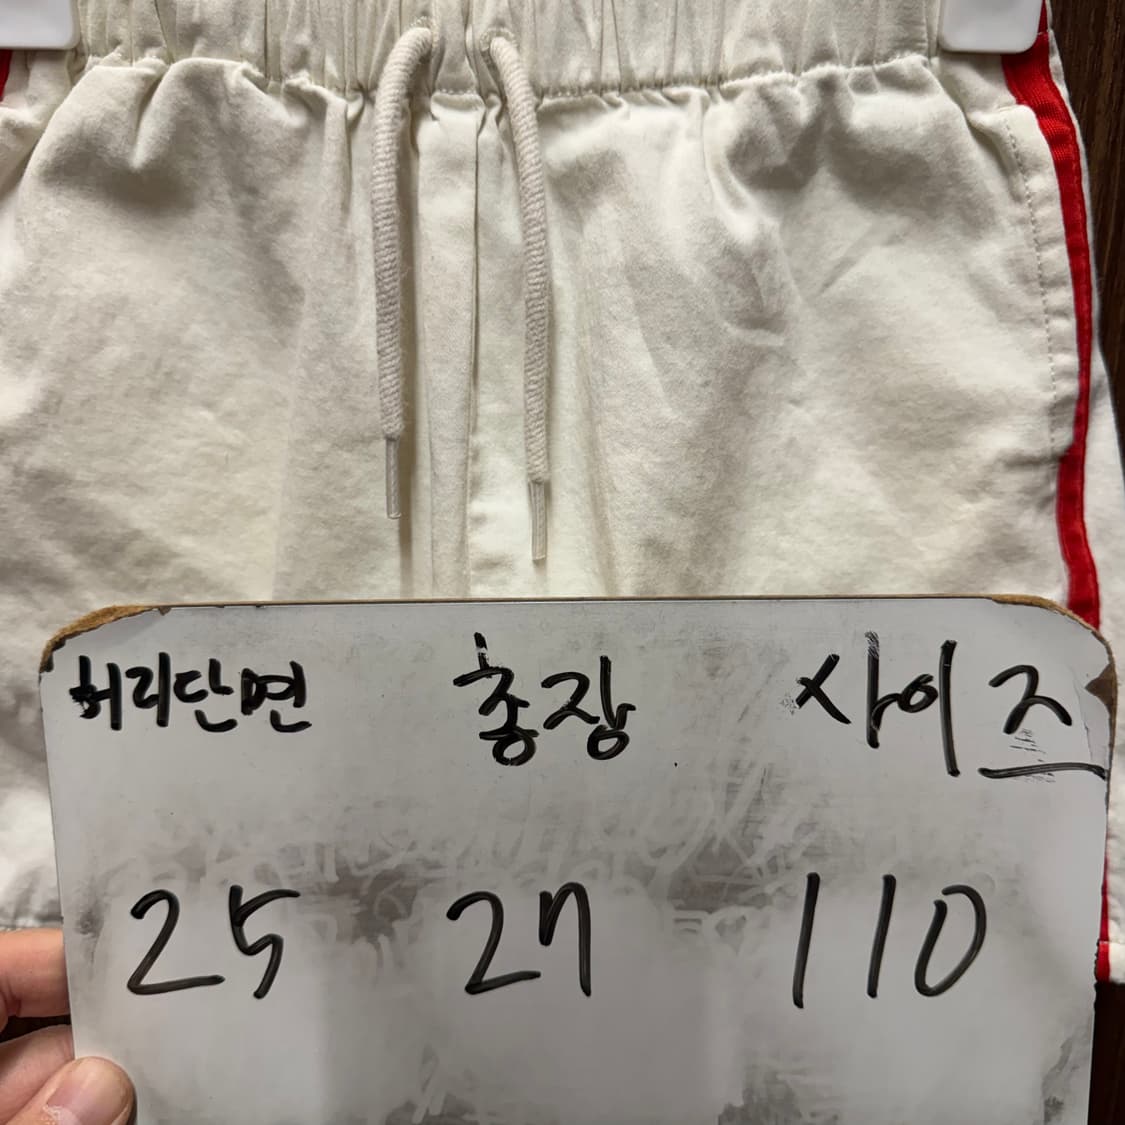 허리단면 총장 사이즈
25 27 110